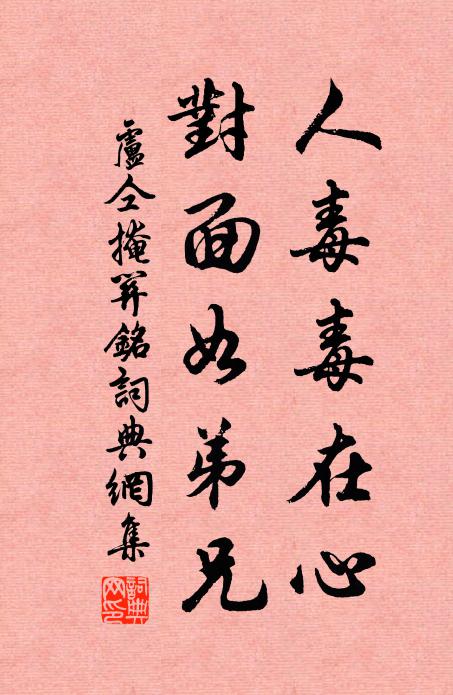 人毒毒在心
對面如弟兄
盧仝掩關銘詞典網集
詞典網印